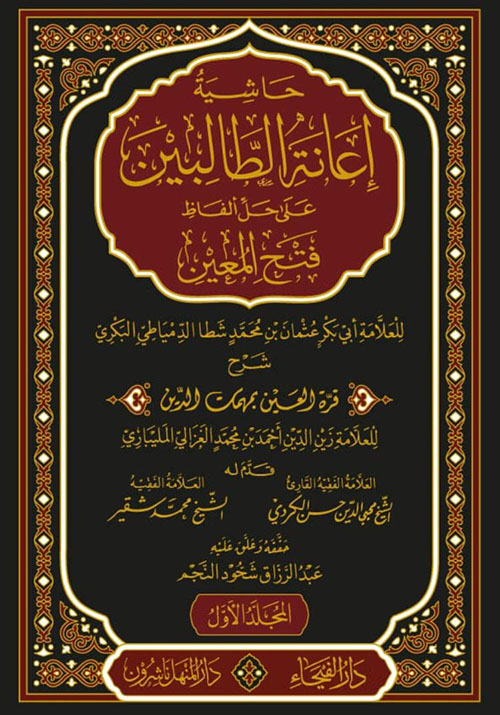 حَاشِيَةُ
إِعَانَةِ الطَّالِبِيْنَ
عَلَى حَلِّ أَلْفَاظِ
فَتْحِ الْمُعِيْنِ
لِلْعَلَّامَةِ أَبِي بَكْرٍ عُثْمَانَ بْنِ مُحَمَّدٍ شَطَا الدِّمْيَاطِيِّ الْبَكْرِيِّ
شَرْحُ
قرة العين بمهمات الدين
لِلْعَلَّامَةِ زَيْنِ الدِّيْنِ أَحْمَدَ بْنِ مُحَمَّدٍ الْغَزَالِيِّ الْمَلِيْبَارِيِّ
قَدَّمَ لَهُ
العَلَّامَةُ الفَقِيْهُ القَارِئُ العَلَّامَةُ الفَقِيْهُ
الشيخ محيي الدين حسن الكردي الشيخ محمد شقير
حَقَّقَهُ وَعَلَّقَ عَلَيْهِ
عَبْدُ الرَّزَّاق شَحُود النَّجْم
المُجَلَّدُ الأَوَّلُ
دَارُ الفَيْحَاءِ دَارُ المَنْهَلِ نَاشِرُوْن